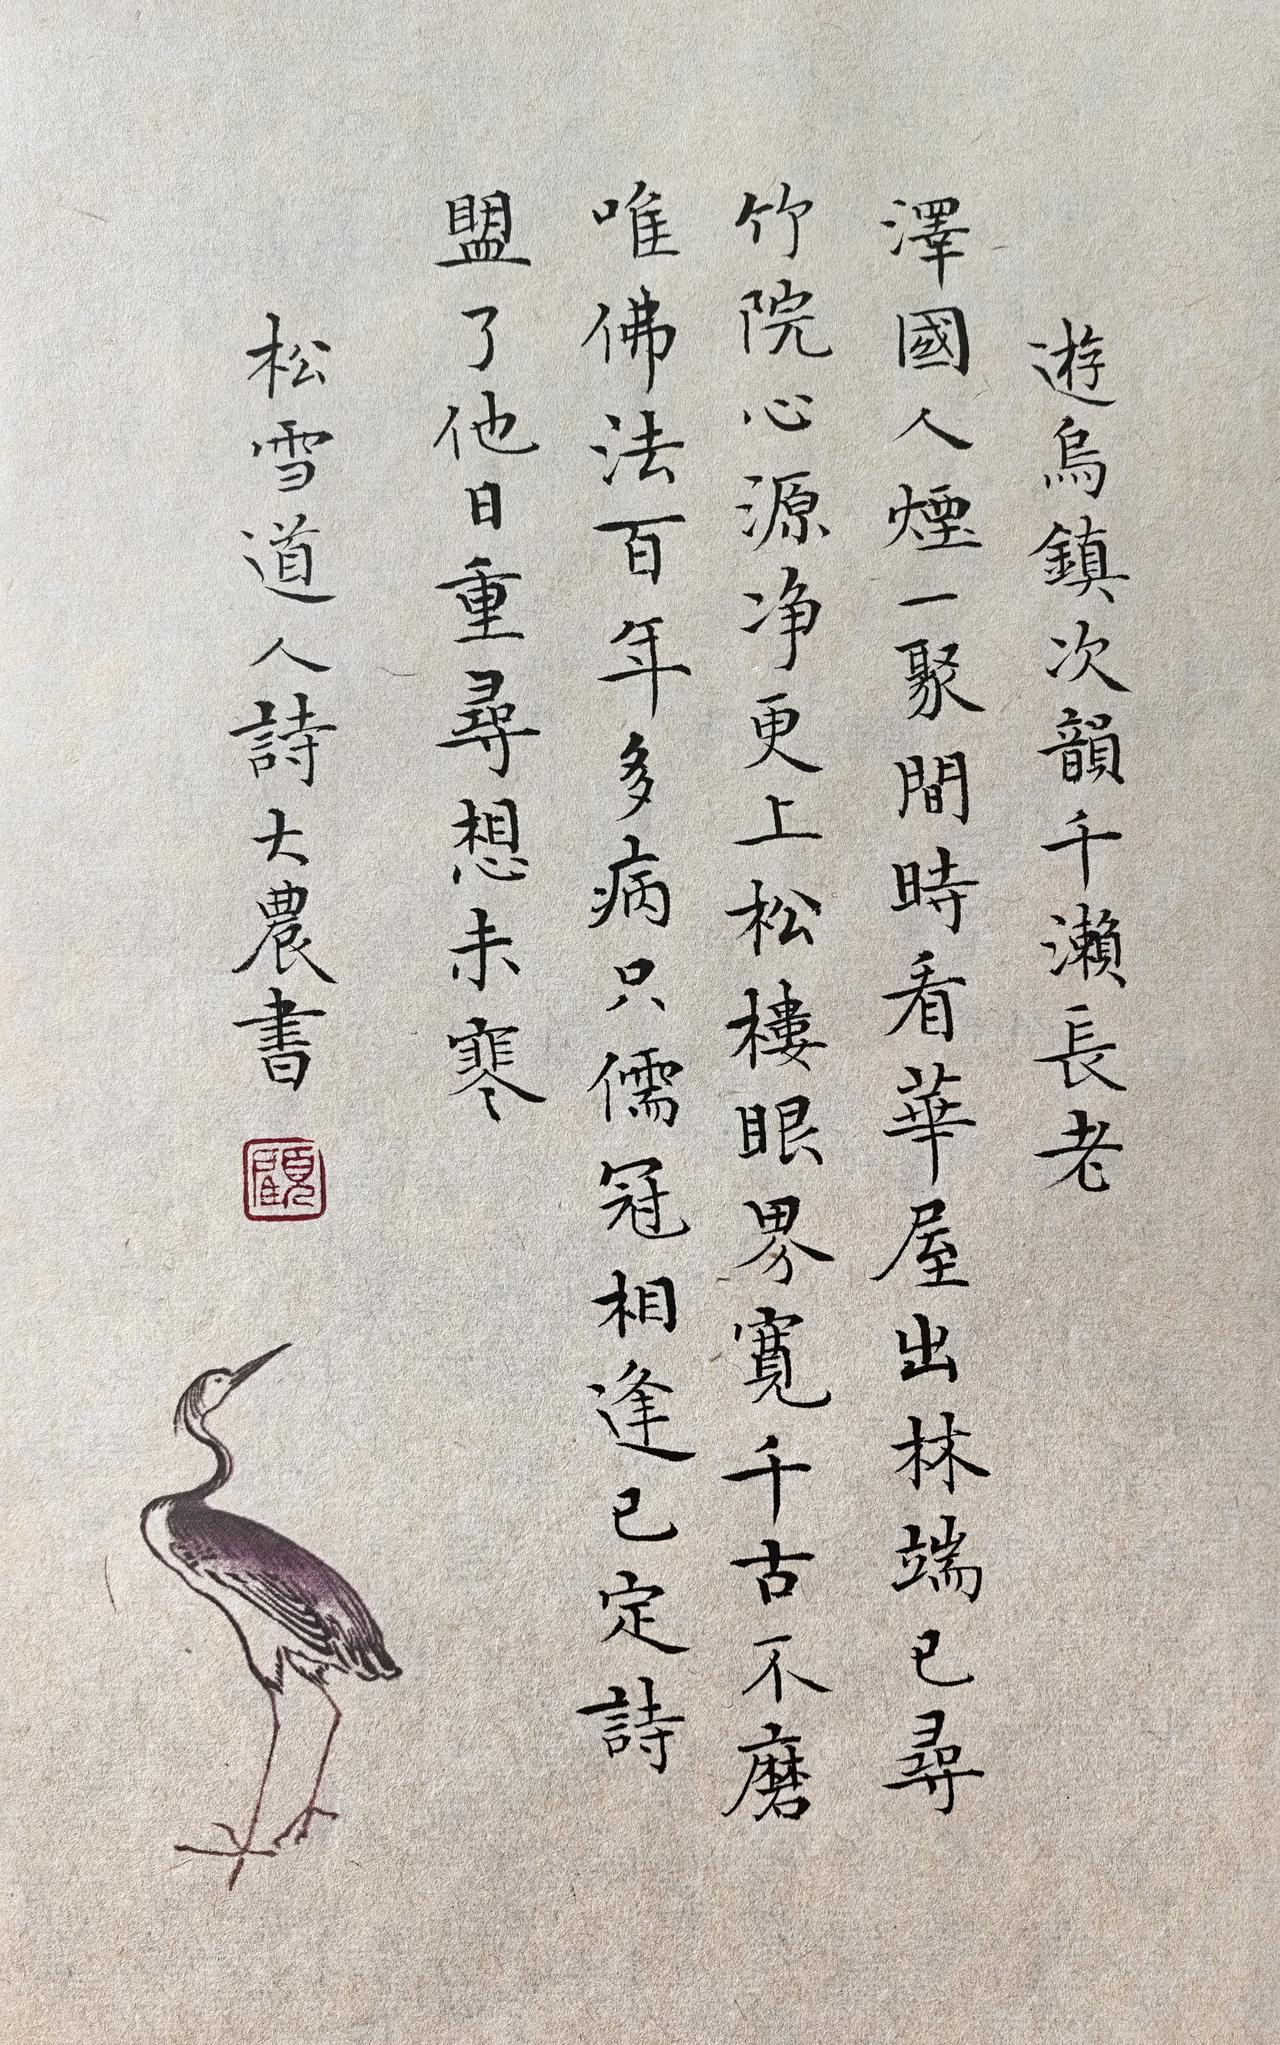 遊烏鎮次韻千瀨長老
澤國人煙一聚間時看華屋出林端已尋
竹院心源净更上松樓眼界寬千古不磨
唯佛法百年多病只儒冠相逢已定詩
盟了他日重尋想未寒
松雪道人詩大農書
顧